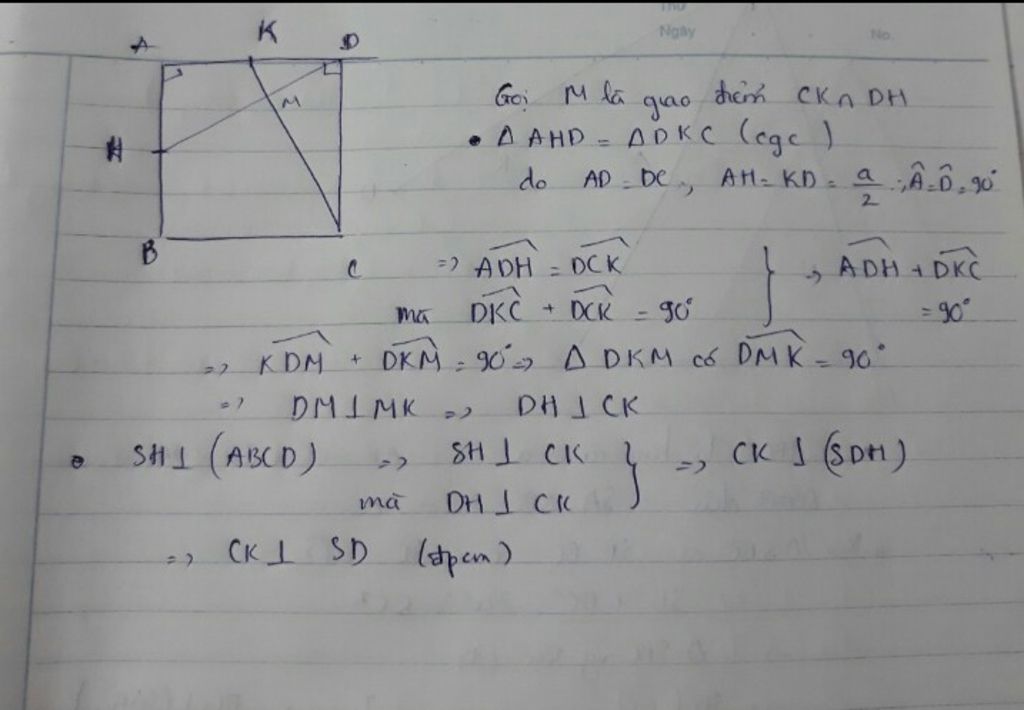 Thứ
Ngày
No.
A K D
M
H
B
C
Gọi M là giao điểm CK ∩ DH
• Δ AHD = Δ DKC (cgc)
do AD = DC, AH = KD = a/2; Â = D̂ = 90°
=> ADH = DCK } => ADH + DKC
mà DKC + DCK = 90° = 90°
=> KDM + DKM = 90° => Δ DKM có DMK = 90°
=> DM ⊥ MK => DH ⊥ CK
• SH ⊥ (ABCD) => SH ⊥ CK } => CK ⊥ (SDH)
mà DH ⊥ CK
=> CK ⊥ SD (đpcm)